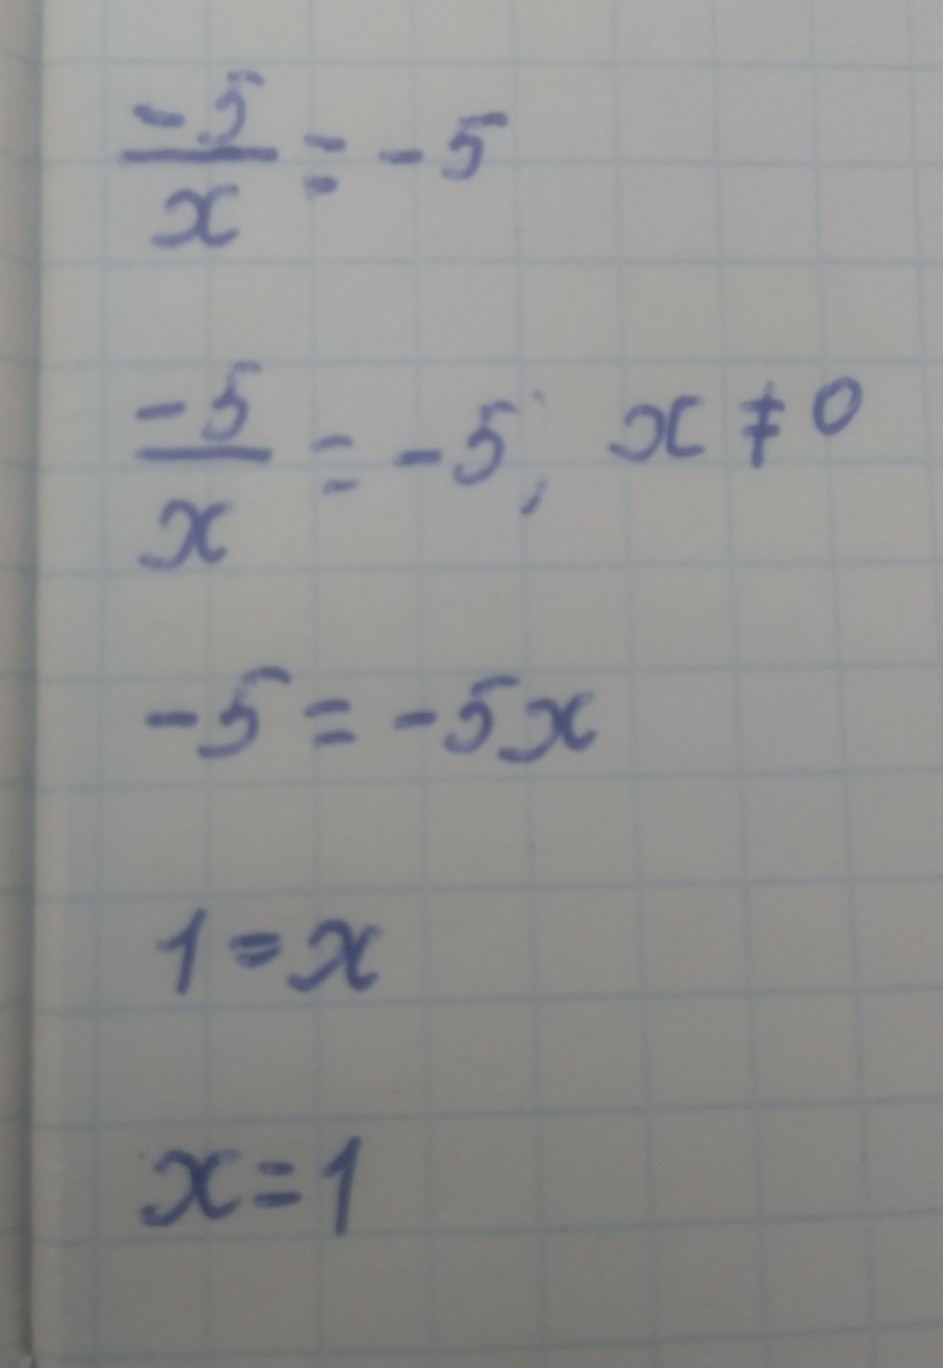 -5/x = -5
-5/x = -5, x ≠ 0
-5 = -5x
1 = x
x = 1